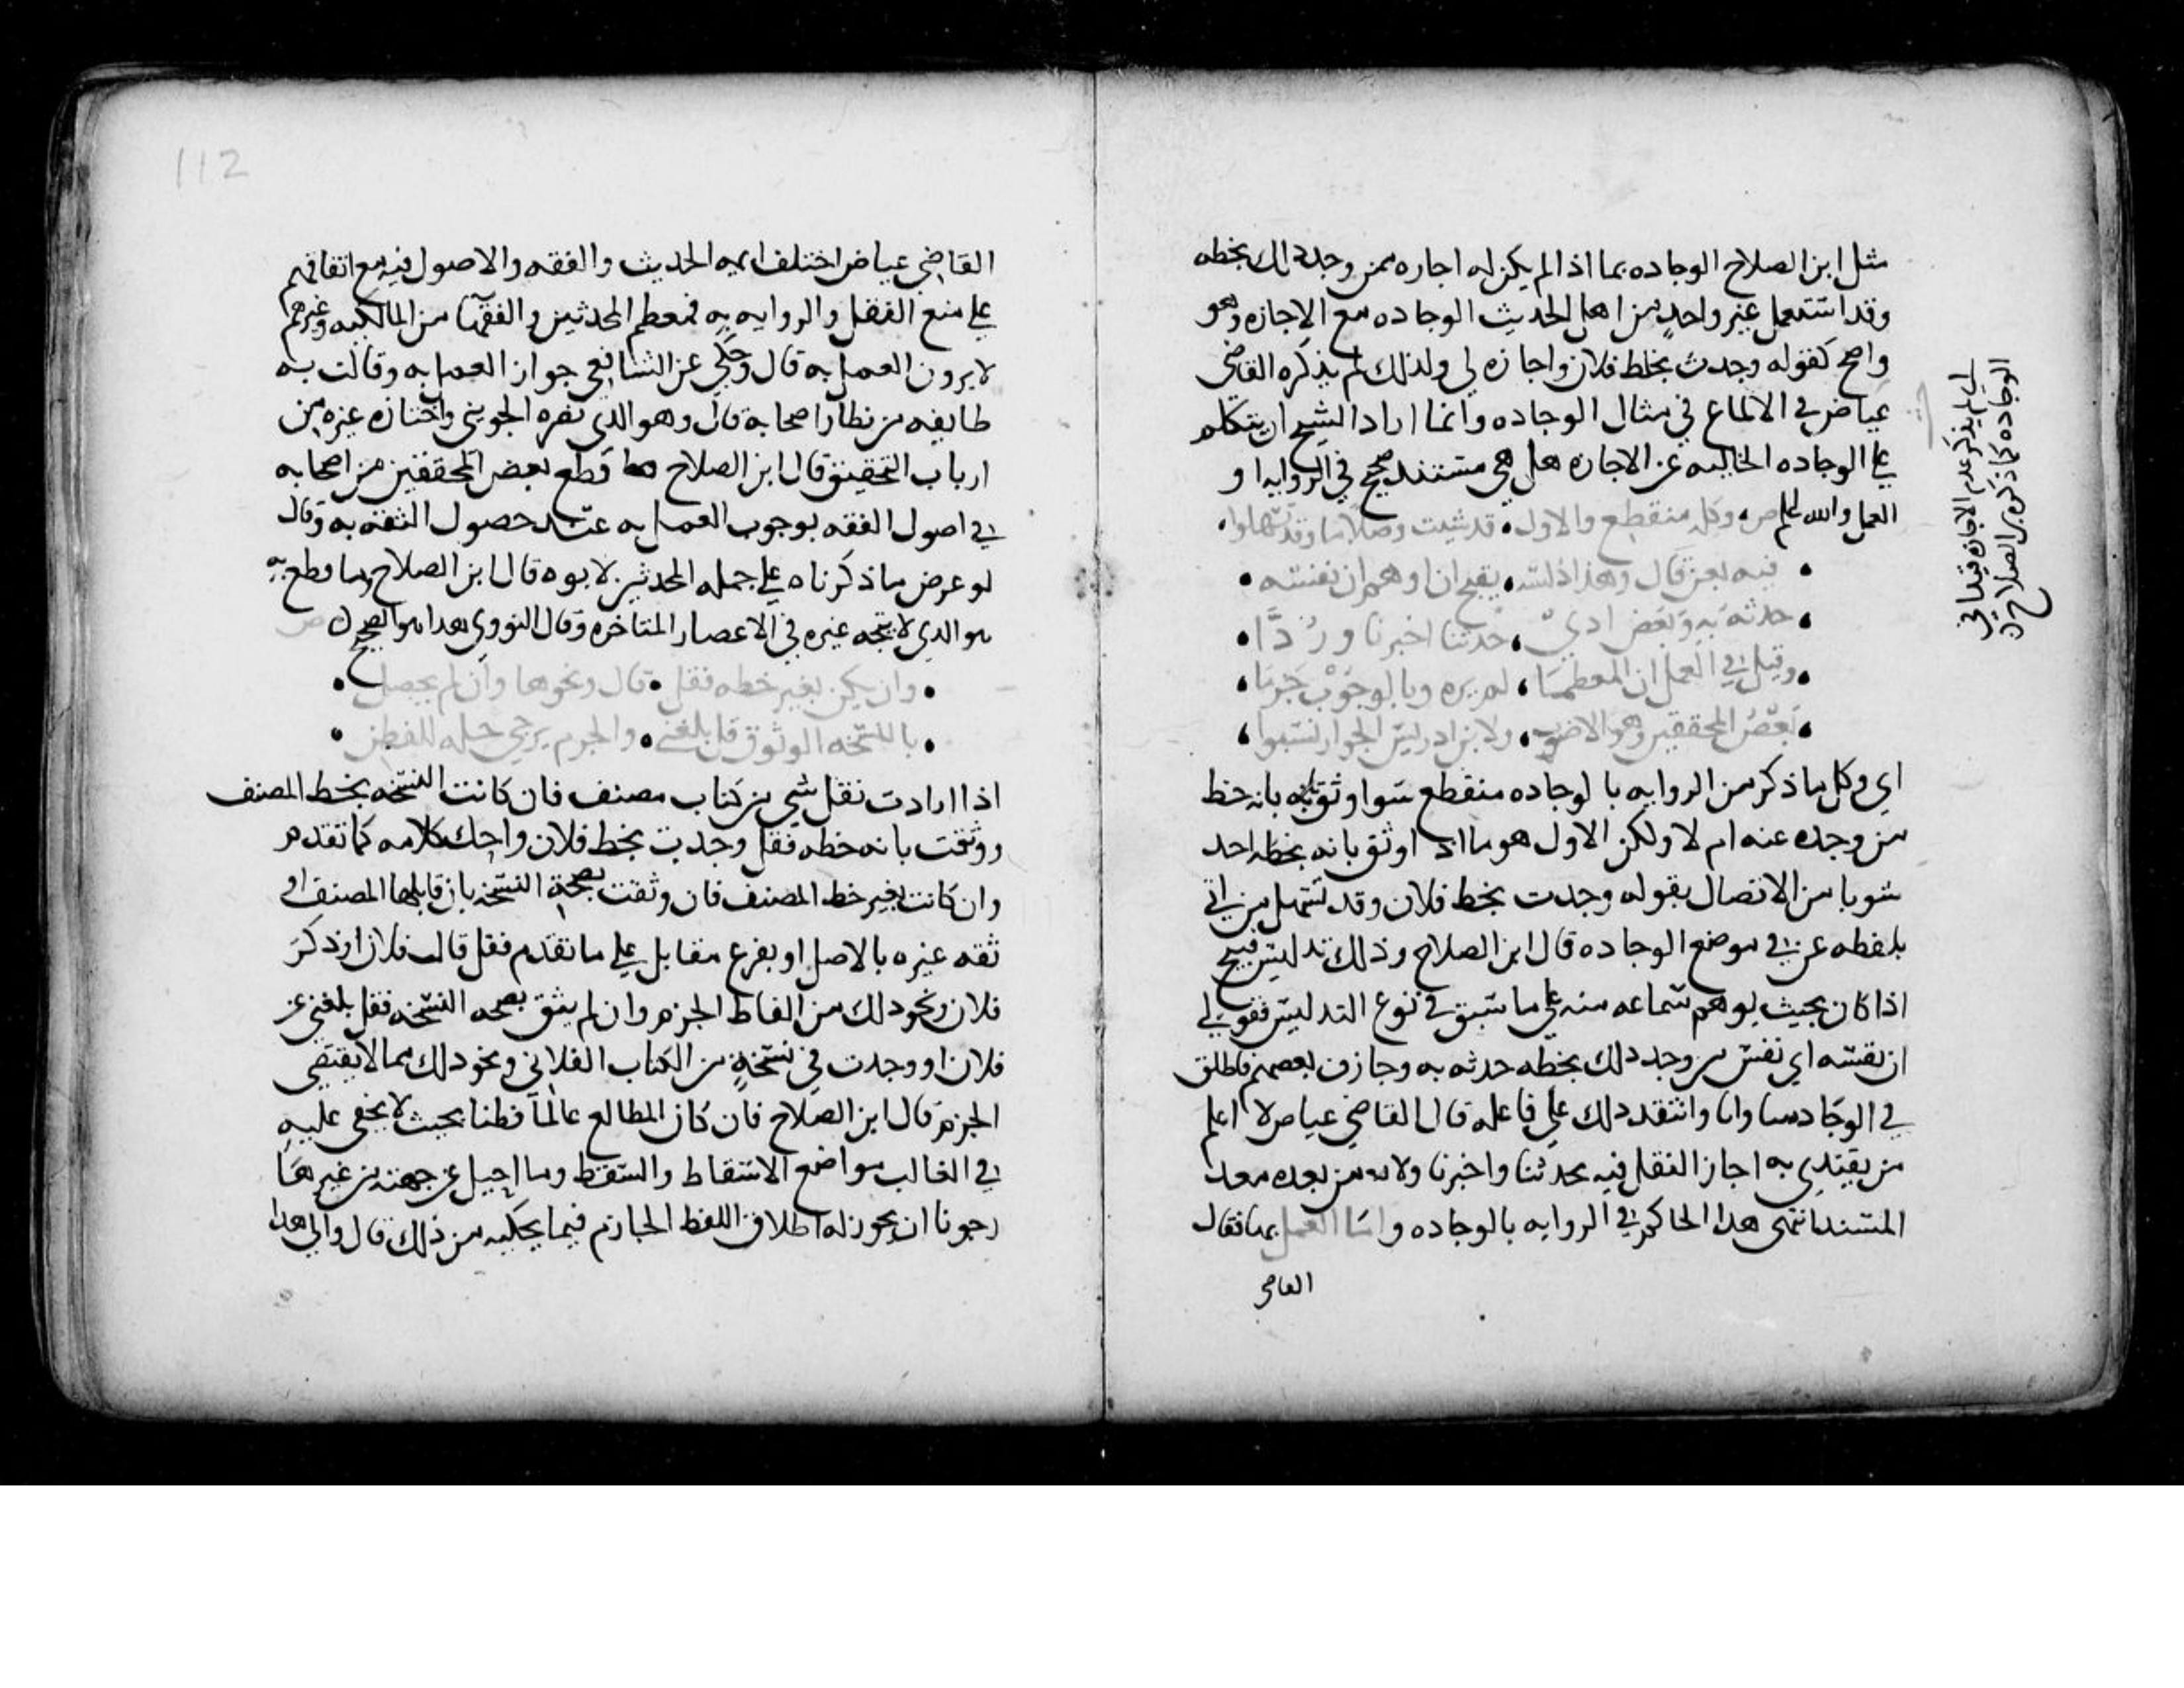 مثل ابن الصلاح الوجاده بما اذا لم يكن له اجازه ممن وجد ذلك بخطه
وقد استعمل غير واحد من اهل الحديث الوجاده مع الاجازه وهو
واضح كقوله وجدت بخط فلان واجازه لي ولذلك لم يذكره القاضي
عياض في الالماع في مثال الوجاده وانما اراد الشيخ ان يتكلم
علي الوجاده الخاليه عن الاجازه هل هي مستند صحيح في الروايه او
العمل والله اعلم ص وكله منقطع والاول • قد شيب وصلا ما وقد تسهلوا
• فيه بعن قال وهذا دلسه • يقبح ان اوهم ان نفسه •
• حدثه به وبعض ادي • حدثنا اخبرنا وردا •
• وقيل في العمل ان المعظما • لم يره وبالوجوب جزما •
• بعض المحققين وهو الاصوب • ولابن ادريس الجواز نسبوا •
اي وكل ما ذكر من الروايه بالوجاده منقطع سوا وثق بانه خط
من وجده عنه ام لا ولكن الاول هو ما اذا وثق بانه بخطه اخذ
شوبا من الاتصال بقوله وجدت بخط فلان وقد تسهل من اتي
بلفظه عن في موضع الوجاده قال ابن الصلاح وذلك تدليس قبيح
اذا كان بحيث يوهم سماعه منه علي ما سبق في نوع التدليس فقولي
ان نفسه اي نفس من وجد ذلك بخطه حدثه به وجازف بعضهم فاطلق
في الوجا دسا وانا وانتقد ذلك علي فاعله قال القاضي عياض لا اعلم
من يقتدي به اجاز النقل فيه بحدثنا واخبرنا ولا من بعده معد
المسند انتهى هذا الحاكم في الروايه بالوجاده واما العمل بها فقال
القاضي
لم يذكر عدم الاجازه قيدا في
الوجاده كما ذكره بن الصلاح
112
القاضي عياض اختلف ايمه الحديث والفقه والاصول فيه مع اتفاقهم
علي منع النقل والروايه به فمعظم المحدثين والفقها من المالكيه وغيرهم
لا يرون العمل به قال وحكي عن الشافعي جواز العمل به وقالت به
طايفه من نظار اصحابه قال وهو الذي نصره الجويني واختاره غيره من
ارباب التحقيق قال ابن الصلاح قطع بعض المحققين من اصحابه
في اصول الفقه بوجوب العمل به عند حصول الثقه به وقال
لو عرض ما ذكرناه علي جمله المحدثين لابوه قال ابن الصلاح وما قطع به
هو الذي لا يتجه غيره في الاعصار المتاخره وقال النووي هذا هو الصحيح ص
• وان يكن بغير خطه فقل • قال ونحوها وان لم يحصل •
• بالنسخه الوثوق قل بلغني • والجزم يرجي حله للفطن •
اذا اردت نقل شي من كتاب مصنف فان كانت النسخه بخط المصنف
ووثقت بانه خطه فقل وجدت بخط فلان واحك كلامه كما تقدم
وان كانت بغير خط المصنف فان وثقت بصحة النسخه بان قابلها المصنف او
ثقه غيره بالاصل او بفرع مقابل علي ما تقدم فقل قال فلان او ذكر
فلان ونحو ذلك من الفاظ الجزم وان لم يثق بصحه النسخه فقل بلغني عن
فلان او وجدت في نسخة من الكتاب الفلاني ونحو ذلك مما لا يقتضي
الجزم قال ابن الصلاح فان كان المطالع عالما فطنا بحيث لا يخفي عليه
في الغالب مواضع الاسقاط والسقط وما احيل عن جهته من غيرها
رجونا ان يجوز له اطلاق اللفظ الجازم فيما يحكيه من ذلك قال والي هذا